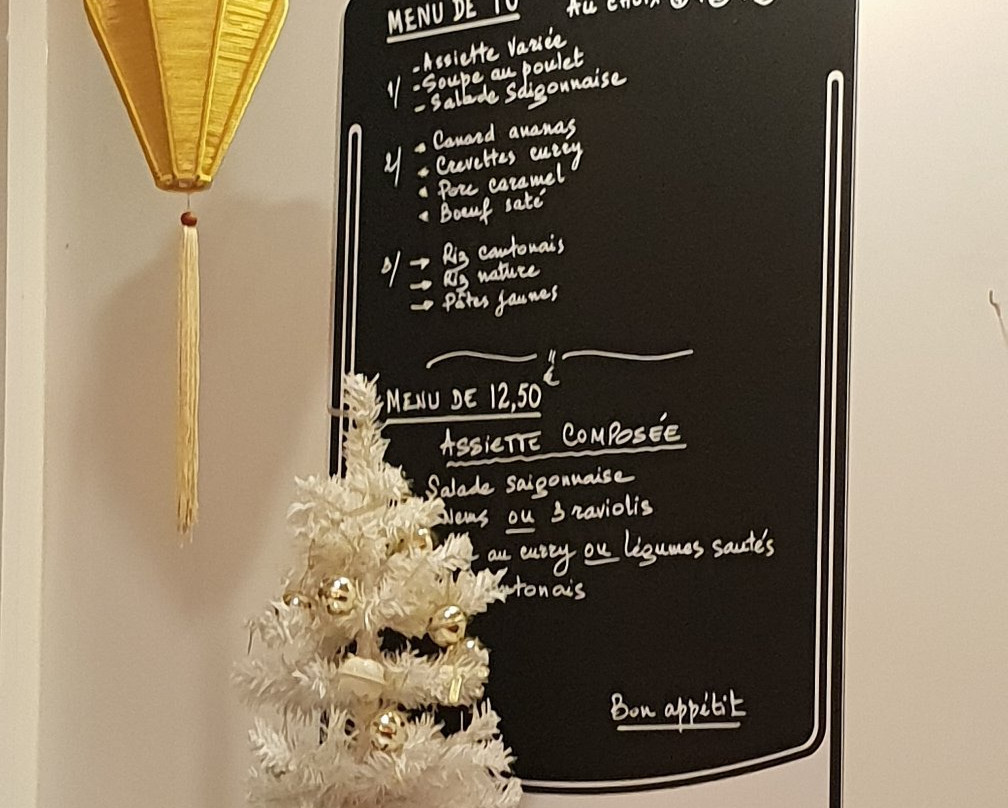 MENU DE 10 Au CHOIX 1 2 3
- Assiette Variée
1/ - Soupe au poulet
- Salade Saigonnaise
• Canard ananas
2/ • Crevettes curry
• Porc caramel
• Boeuf saté
3/ → Riz cantonais
→ Riz nature
→ Pâtes jaunes
€
MENU DE 12,50
ASSIETTE COMPOSÉE
Salade saigonnaise
Nems ou 3 raviolis
au curry ou légumes sautés
Bon appétit